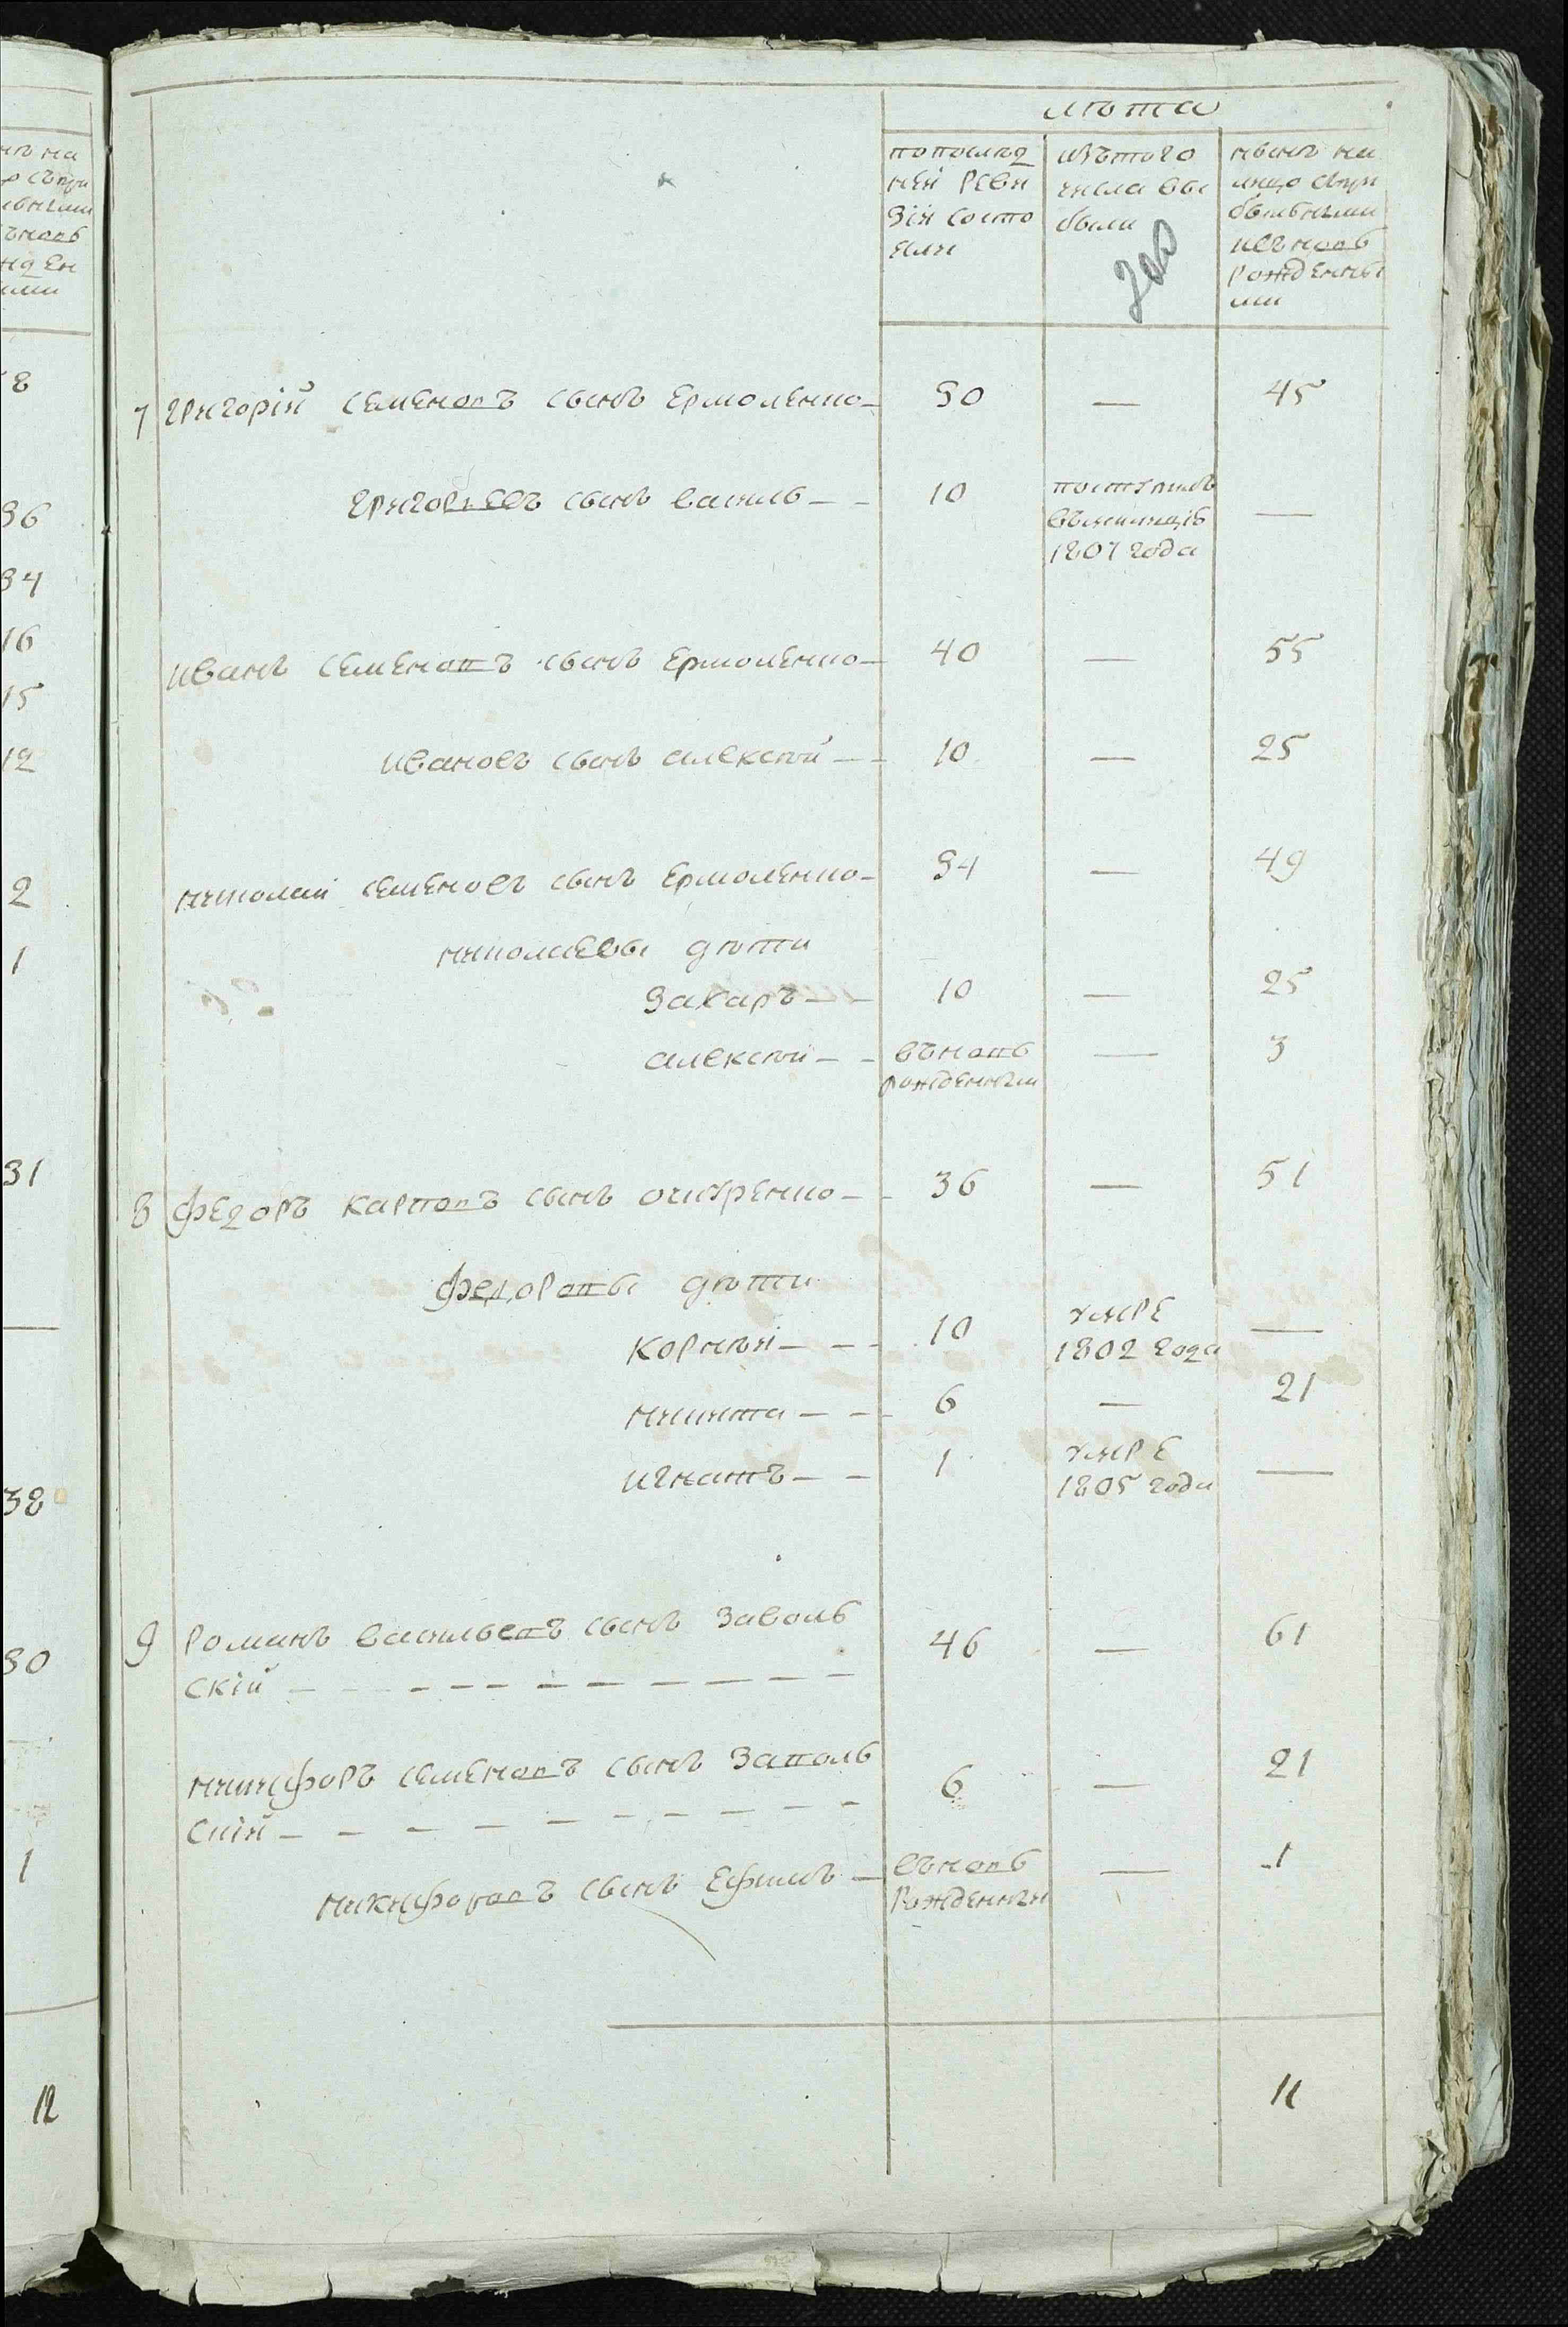 лѣта
попослѣд
ней реви
зіи состо
яли
изътого
числа вы
были
нынѣ на
лицо съпри
былыми
ивъновь
рожденны
ми
200
7 Григорій Семеновъ сынъ Ермоленко — 30 — 45
Григорьевъ сынъ Василь — — 10 поступилъ —
въмилицію
1807 года
Иванъ Семеновъ сынъ Ермоленко — 40 — 55
Ивановъ сынъ Алексѣй — — 10 — 25
Николай Семеновъ сынъ Ермоленко — 34 — 49
Николаевы дѣти
Захаръ — — 10 — 25
Алексѣй — — въновь — 3
рожденный
8 Федоръ Карповъ сынъ — — 36 — 51
Федоровы дѣти
Корнѣй — — — 10 умре —
1802 года
Никита — — — 6 — 21
Игнатъ — — 1 умре —
1805 года
9 Романъ Васильевъ сынъ Заволь 46 — 61
скій — — — — — — — — — —
Никифоръ Семеновъ сынъ Заволь 6 — 21
скій — — — — — — — — —
Никифоровъ сынъ Ефимъ — въновь — 1
рожденный
11
36
34
16
15
12
2
1
31
38
30
1
12